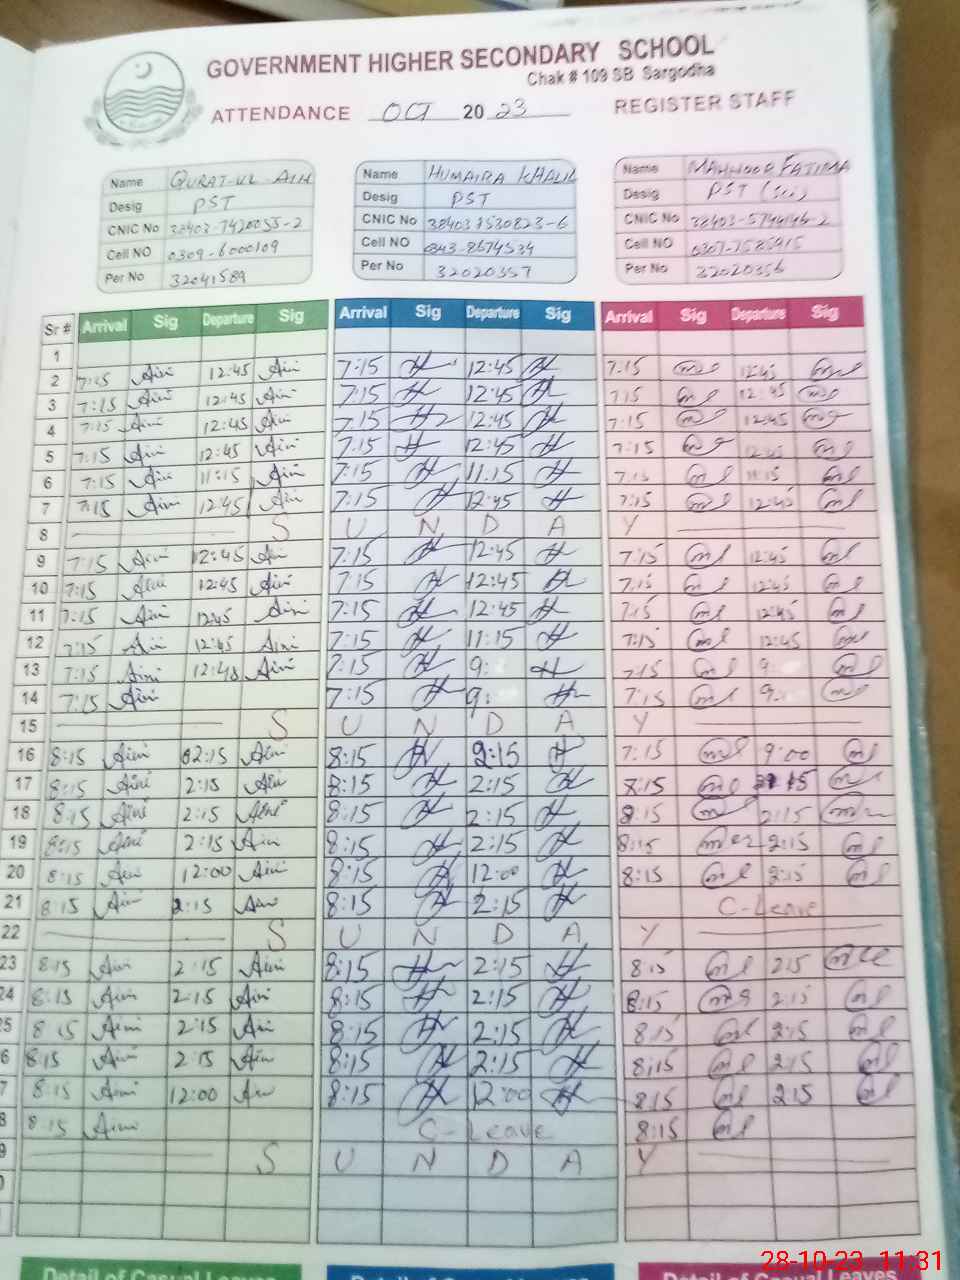 GOVERNMENT HIGHER SECONDARY SCHOOL
Chak # 109 SB Sargodha
ATTENDANCE OCT 2023 REGISTER STAFF
Name QURAT-UL AIN Name HUMAIRA KHALIL Name MAHNOOR FATIMA
Desig PST Desig PST Desig PST
CNIC No 38403-7420055-2 CNIC No 384037530823-6 CNIC No 38403-5794146-2
Cell NO 0309-6000109 Cell NO 0343-8674534 Cell NO 0307-7585915
Per No 32041589 Per No 32020357 Per No 32020356
Sr # Arrival Sig Departure Sig Arrival Sig Departure Sig Arrival Sig Departure Sig
1
2 7:15 Aini 12:45 Aini 7:15 12:45 7:15 12:45
3 7:15 Aini 12:45 Aini 7:15 12:45 7:15 12:45
4 7:15 Aini 12:45 Aini 7:15 12:45 7:15 12:45
5 7:15 Aini 12:45 Aini 7:15 12:45 7:15 12:45
6 7:15 Aini 11:15 Aini 7:15 11:15 7:15 11:15
7 7:15 Aini 12:45 Aini 7:15 12:45 7:15 12:45
8 S U N D A Y
9 7:15 Aini 12:45 Aini 7:15 12:45 7:15 12:45
10 7:15 Aini 12:45 Aini 7:15 12:45 7:15 12:45
11 7:15 Aini 12:45 Aini 7:15 12:45 7:15 12:45
12 7:15 Aini 12:45 Aini 7:15 11:15 7:15 12:45
13 7:15 Aini 12:45 Aini 7:15 9: 7:15 9:
14 7:15 Aini 7:15 9: 7:15 9:
15 S U N D A Y
16 8:15 Aini 02:15 Aini 8:15 2:15 7:15 9:00
17 8:15 Aini 2:15 Aini 8:15 2:15 8:15
18 8:15 Aini 2:15 Aini 8:15 2:15 8:15 2:15
19 8:15 Aini 2:15 Aini 8:15 2:15 8:15 2:15
20 8:15 Aini 12:00 Aini 8:15 12:00 8:15 2:15
21 8:15 Aini 2:15 Aini 8:15 2:15 C-Leave
22 S U N D A Y
23 8:15 Aini 2:15 Aini 8:15 2:15 8:15 2:15
24 8:15 Aini 2:15 Aini 8:15 2:15 8:15 2:15
5 8:15 Aini 2:15 Aini 8:15 2:15 8:15 2:15
6 8:15 Aini 2:15 Aini 8:15 2:15 8:15 2:15
7 8:15 Aini 12:00 Aini 8:15 12:00 8:15 2:15
8 8:15 Aini C-Leave 8:15
9 S U N D A Y
0
Detail of Casual Leaves
28-10-23 11:31